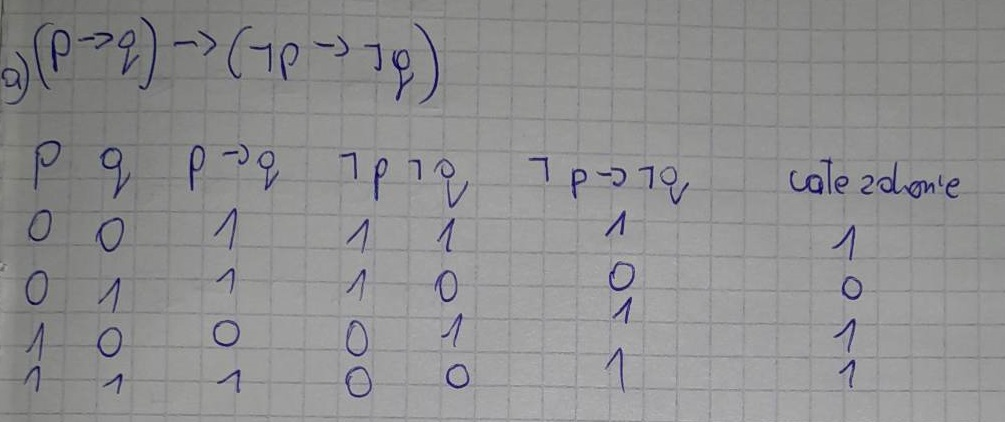 a) (p → q) → (¬p → ¬q)
p q p → q ¬p ¬q ¬p → ¬q całe zdanie
0 0 1 1 1 1 1
0 1 1 1 0 0 0
1 0 0 0 1 1 1
1 1 1 0 0 1 1